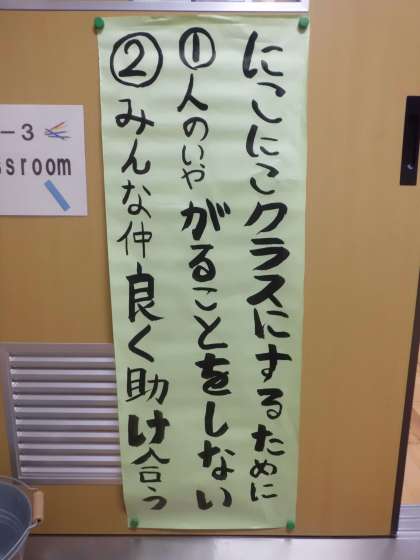 にこにこクラスにするために
①人のいやがることをしない
②みんな仲良く助け合う
-3
ssroom